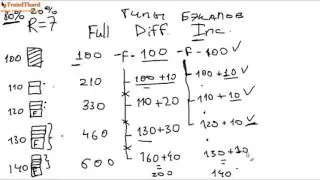 TrainItHard
80% 20% Типы Бэкапов
R=7 Full Diff. Inc.
100 100 -F- 100 -F- 100 ✓
110 210 100+10 100+10 ✓
120 F 330 110+20 110+10 ✓
130 F 460 130+30 120+10 ✓
140 F 600 160+40 130+10
200 140